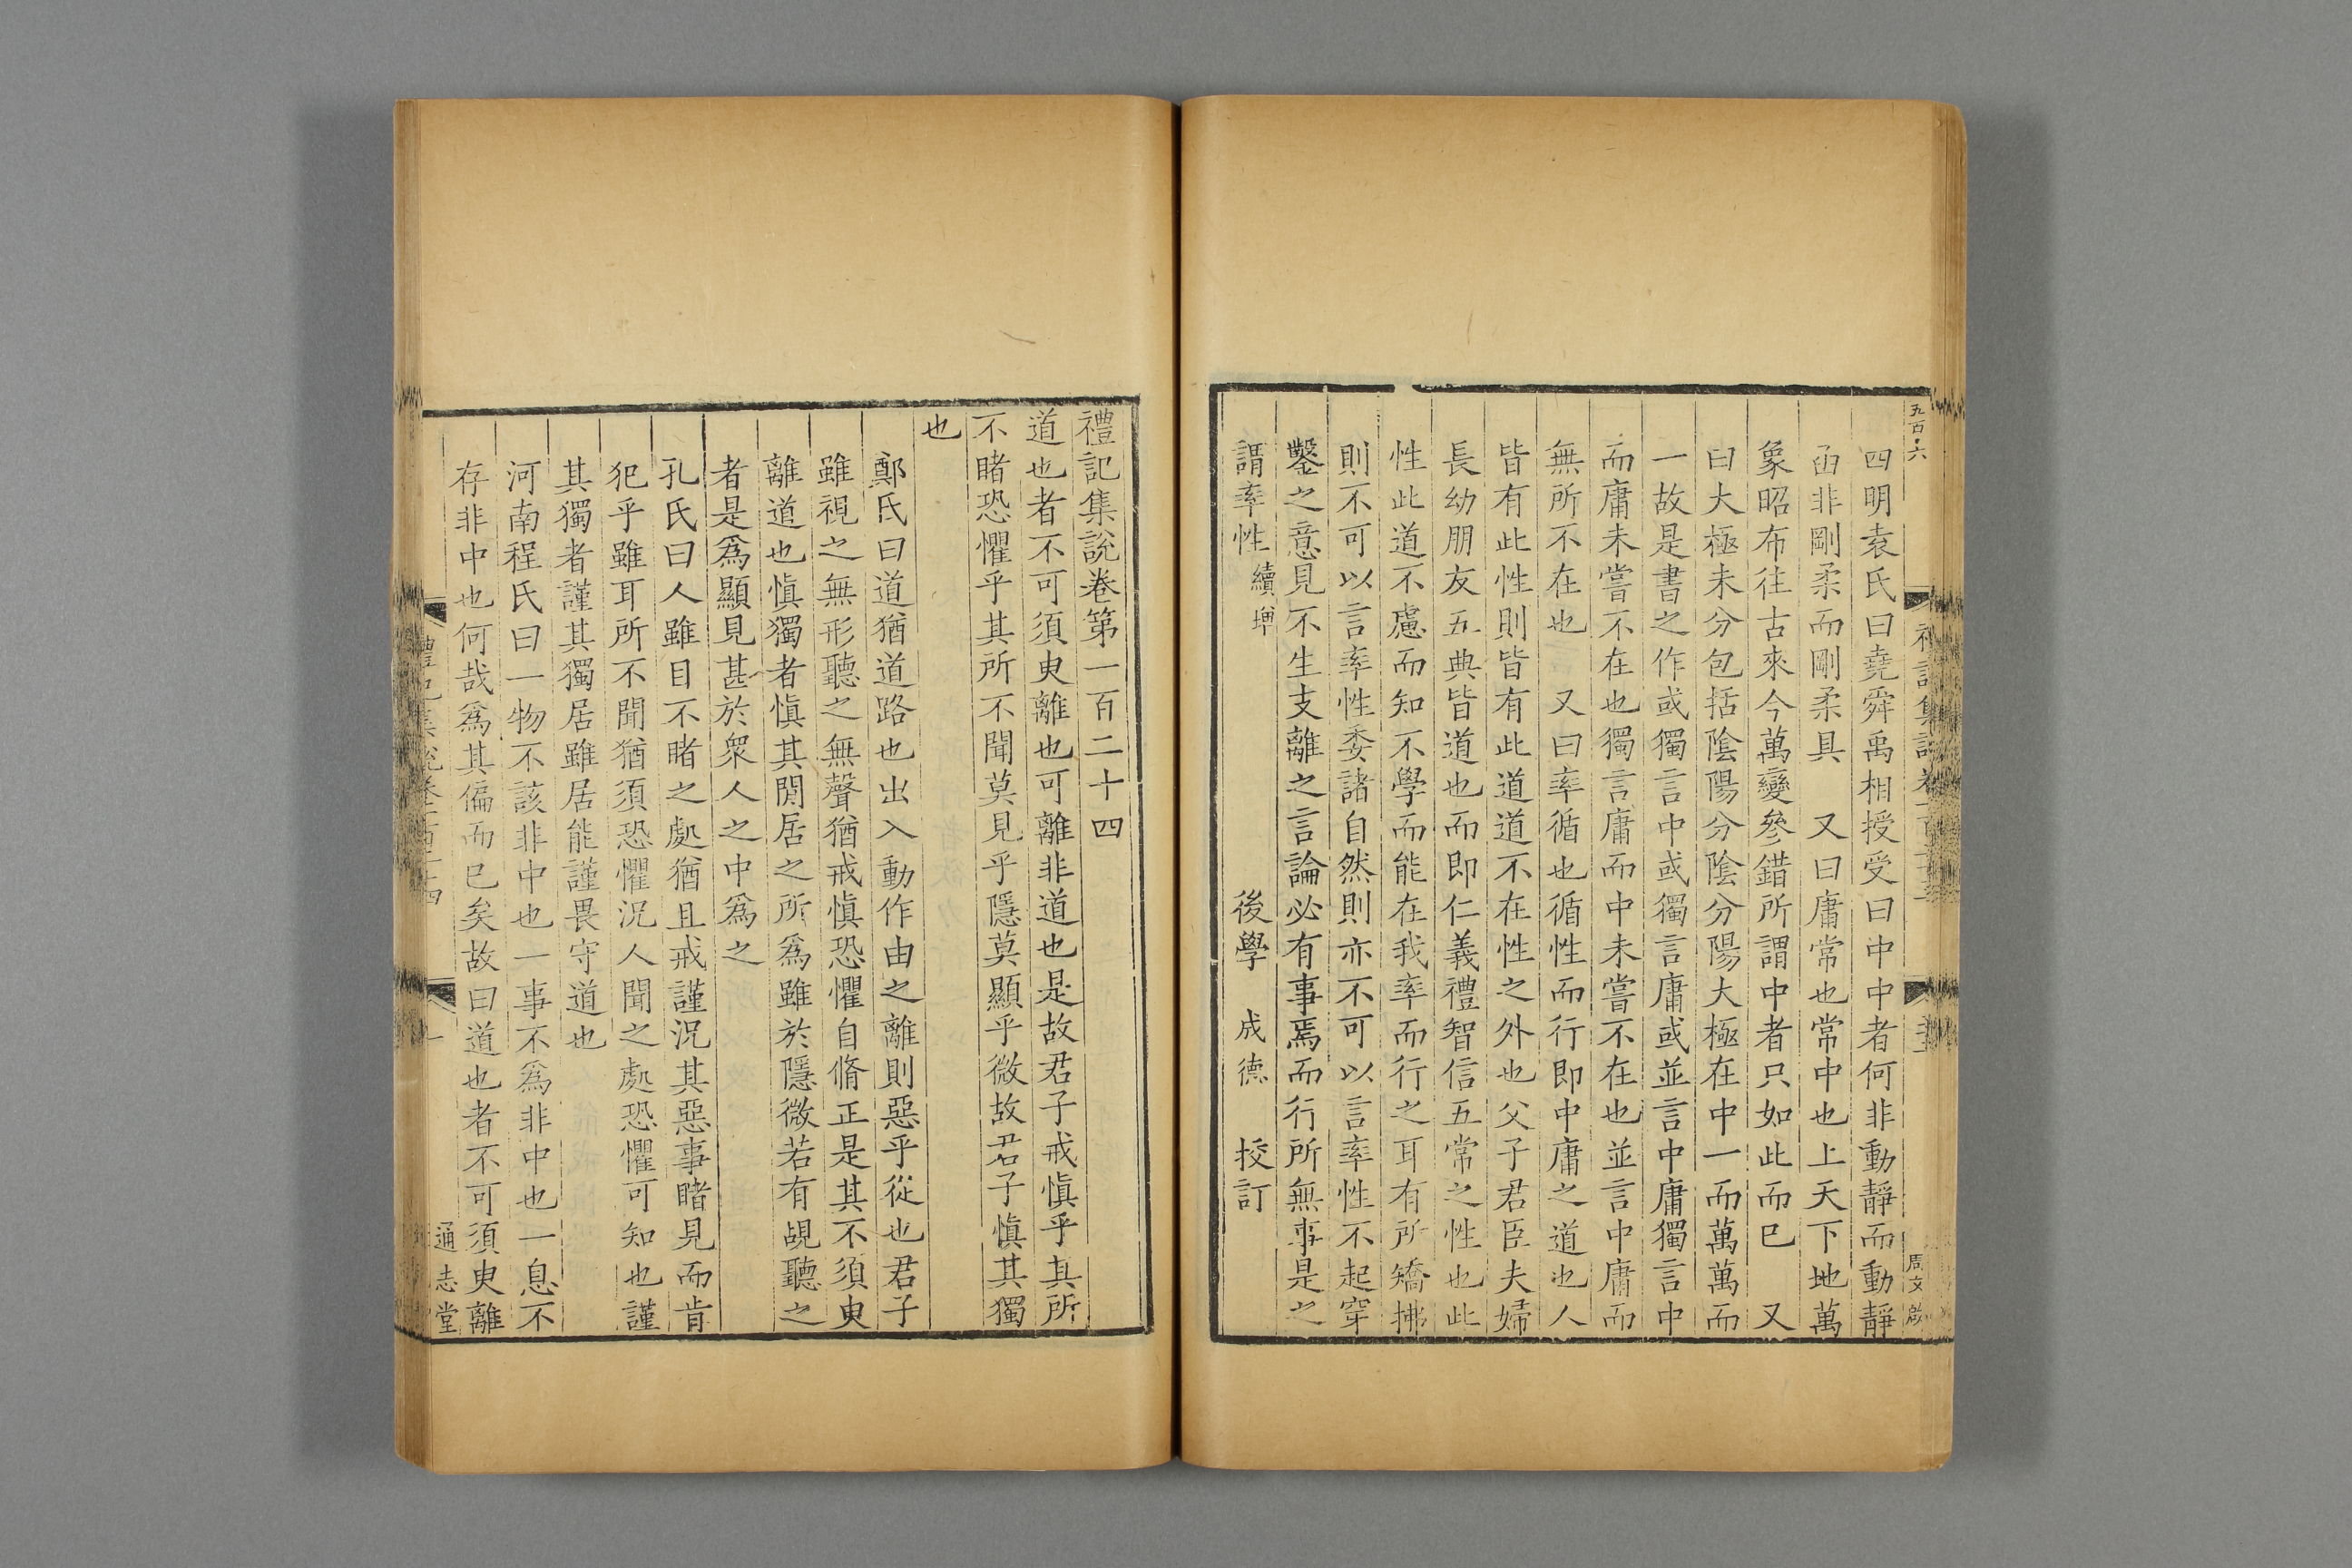 五百六
周文啟
四明袁氏曰堯舜禹相授受曰中中者何非動靜而動靜
函非剛柔而剛柔具　又曰庸常也常中也上天下地萬
象昭布往古來今萬變參錯所謂中者只如此而已　又
曰大極未分包括陰陽分陰分陽大極在中一而萬萬而
一故是書之作或獨言中或獨言庸或並言中庸獨言中
而庸未嘗不在也獨言庸而中未嘗不在也並言中庸而
無所不在也　又曰率循也循性而行即中庸之道也人
皆有此性則皆有此道道不在性之外也父子君臣夫婦
長幼朋友五典皆道也而即仁義禮智信五常之性也此
性此道不慮而知不學而能在我率而行之耳有所矯拂
則不可以言率性委諸自然則亦不可以言率性不起穿
鑿之意見不生支離之言論必有事焉而行所無事是之
謂率性續增　後學　成德　挍訂
禮記集說卷第一百二十四
道也者不可須臾離也可離非道也是故君子戒慎乎其所
不睹恐懼乎其所不聞莫見乎隱莫顯乎微故君子慎其獨
也
鄭氏曰道猶道路也出入動作由之離則惡乎從也君子
雖視之無形聽之無聲猶戒慎恐懼自脩正是其不須臾
離道也慎獨者慎其閒居之所為雖於隱微若有覘聽之
者是為顯見甚於衆人之中為之
孔氏曰人雖目不睹之處猶且戒謹況其惡事睹見而肯
犯乎雖耳所不聞猶須恐懼況人聞之處恐懼可知也謹
其獨者謹其獨居雖居能謹畏守道也
河南程氏曰一物不該非中也一事不為非中也一息不
存非中也何哉為其偏而已矣故曰道也者不可須臾離
禮記集說卷一百二十四　一
通志堂